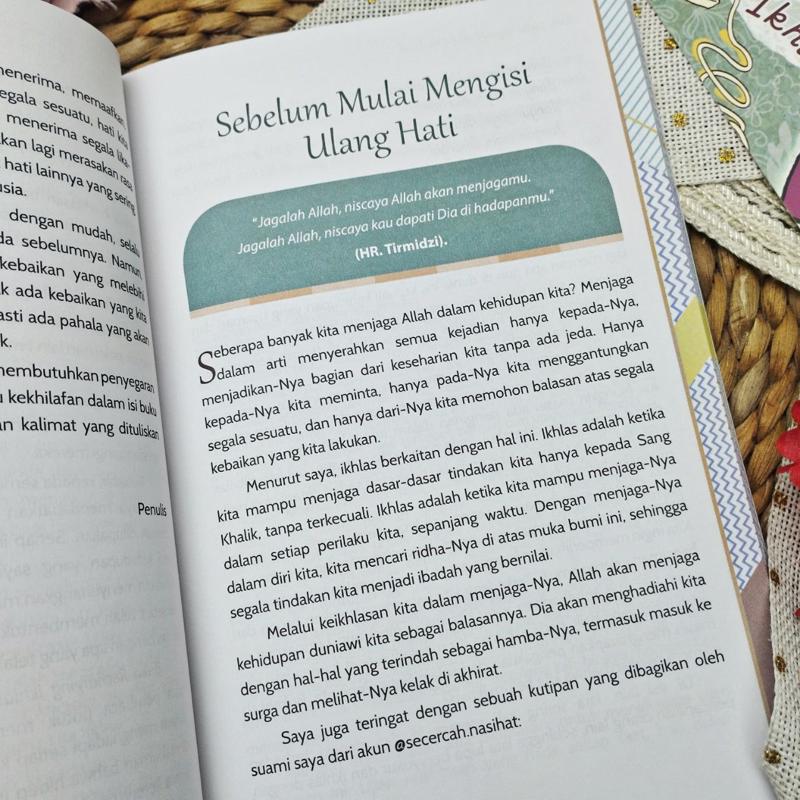 menerima, memaafkan
segala sesuatu, hati kita
menerima segala lika-
akan lagi merasakan rasa
hati lainnya yang sering
usia.
dengan mudah, selalu
da sebelumnya. Namun,
kebaikan yang melebihi
k ada kebaikan yang kita
asti ada pahala yang akan
k.
membutuhkan penyegaran
u kekhilafan dalam isi buku
an kalimat yang dituliskan
Penulis
Sebelum Mulai Mengisi
Ulang Hati
"Jagalah Allah, niscaya Allah akan menjagamu.
Jagalah Allah, niscaya kau dapati Dia di hadapanmu."
(HR. Tirmidzi).
Seberapa banyak kita menjaga Allah dalam kehidupan kita? Menjaga
dalam arti menyerahkan semua kejadian hanya kepada-Nya,
menjadikan-Nya bagian dari keseharian kita tanpa ada jeda. Hanya
kepada-Nya kita meminta, hanya pada-Nya kita menggantungkan
segala sesuatu, dan hanya dari-Nya kita memohon balasan atas segala
kebaikan yang kita lakukan.
Menurut saya, ikhlas berkaitan dengan hal ini. Ikhlas adalah ketika
kita mampu menjaga dasar-dasar tindakan kita hanya kepada Sang
Khalik, tanpa terkecuali. Ikhlas adalah ketika kita mampu menjaga-Nya
dalam setiap perilaku kita, sepanjang waktu. Dengan menjaga-Nya
dalam diri kita, kita mencari ridha-Nya di atas muka bumi ini, sehingga
segala tindakan kita menjadi ibadah yang bernilai.
Melalui keikhlasan kita dalam menjaga-Nya, Allah akan menjaga
kehidupan duniawi kita sebagai balasannya. Dia akan menghadiahi kita
dengan hal-hal yang terindah sebagai hamba-Nya, termasuk masuk ke
surga dan melihat-Nya kelak di akhirat.
Saya juga teringat dengan sebuah kutipan yang dibagikan oleh
suami saya dari akun @secercah.nasihat: